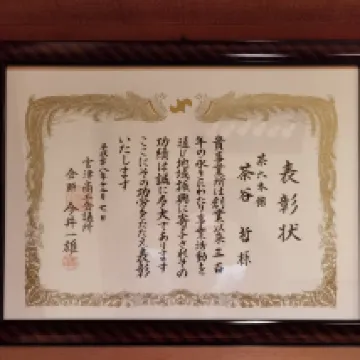 表彰状
茶六本館
茶谷 哲 様
貴事業所は創業以来三百
年の永きにわたり事業活動を
通じ地域振興に寄与されその
功績は誠に多大であります
ここにその功労をたたえ表彰
いたします
宮津商工会議所
会頭 今井一雄